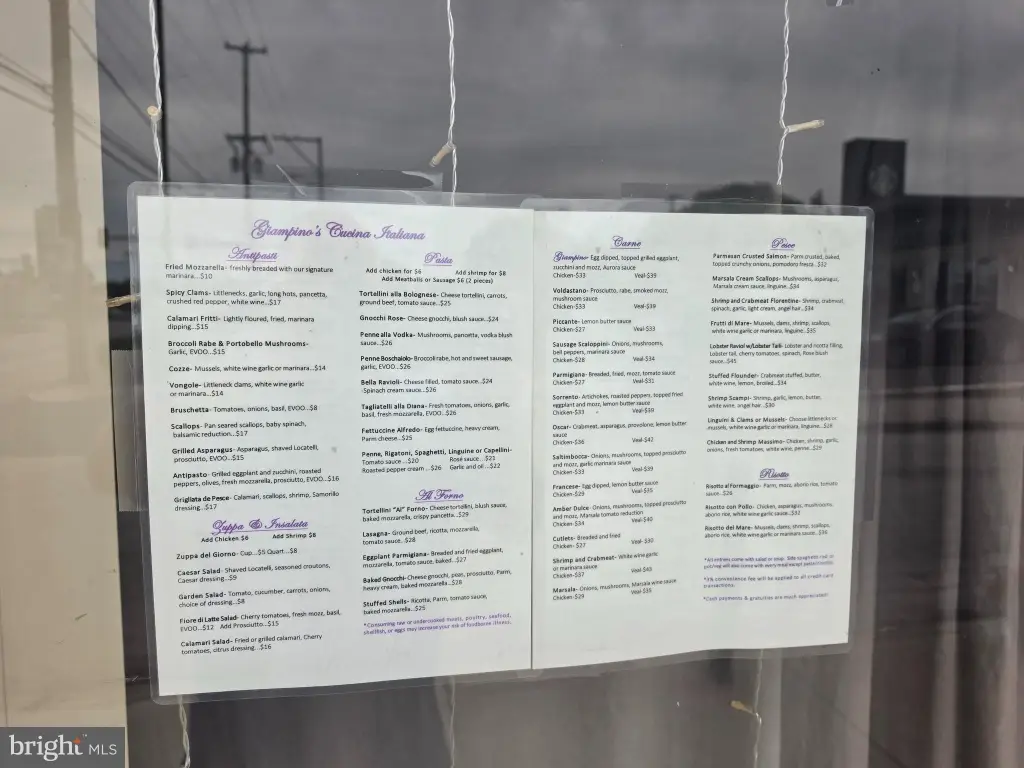 Giampino's Cucina Italiana
Antipasti
Fried Mozzarella- freshly breaded with our signature
marinara...$10
Spicy Clams- Littlenecks, garlic, long hots, pancetta,
crushed red pepper, white wine...$17
Calamari Fritti- Lightly floured, fried, marinara
dipping...$15
Broccoli Rabe & Portobello Mushrooms-
Garlic, EVOO...$15
Cozze- Mussels, white wine garlic or marinara...$14
Vongole- Littleneck clams, white wine garlic
or marinara...$14
Bruschetta- Tomatoes, onions, basil, EVOO...$8
Scallops- Pan seared scallops, baby spinach,
balsamic reduction...$17
Grilled Asparagus- Asparagus, shaved Locatelli,
prosciutto, EVOO...$15
Antipasto- Grilled eggplant and zucchini, roasted
peppers, olives, fresh mozzarella, prosciutto, EVOO...$16
Grigliata de Pesce- Calamari, scallops, shrimp, Samorillo
dressing...$17
Zuppa & Insalata
Add Chicken $6 Add Shrimp $8
Zuppa del Giorno- Cup...$5 Quart...$8
Caesar Salad- Shaved Locatelli, seasoned croutons,
Caesar dressing...$9
Garden Salad- Tomato, cucumber, carrots, onions,
choice of dressing...$8
Fiore di Latte Salad- Cherry tomatoes, fresh mozz, basil,
EVOO...$12 Add Prosciutto...$15
Calamari Salad- Fried or grilled calamari, Cherry
tomatoes, citrus dressing...$16
Pasta
Add chicken for $6 Add shrimp for $8
Add Meatballs or Sausage $6 (2 pieces)
Tortellini alla Bolognese- Cheese tortellini, carrots,
ground beef, tomato sauce...$25
Gnocchi Rose- Cheese gnocchi, blush sauce...$24
Penne alla Vodka- Mushrooms, pancetta, vodka blush
sauce...$26
Penne Boschaiolo- Broccoli rabe, hot and sweet sausage,
garlic, EVOO...$26
Bella Ravioli- Cheese filled, tomato sauce...$24
-Spinach cream sauce...$26
Tagliatelli alla Diana- Fresh tomatoes, onions, garlic,
basil, fresh mozzarella, EVOO...$26
Fettuccine Alfredo- Egg fettuccine, heavy cream,
Parm cheese...$25
Penne, Rigatoni, Spaghetti, Linguine or Capellini-
Tomato sauce ...$20 Rosé sauce...$21
Roasted pepper cream ...$26 Garlic and oil ...$22
Al Forno
Tortellini "Al" Forno- Cheese tortellini, blush sauce,
baked mozzarella, crispy pancetta...$29
Lasagna- Ground beef, ricotta, mozzarella,
tomato sauce...$28
Eggplant Parmigiana- Breaded and fried eggplant,
mozzarella, tomato sauce, baked...$27
Baked Gnocchi- Cheese gnocchi, peas, prosciutto, Parm,
heavy cream, baked mozzarella...$28
Stuffed Shells- Ricotta, Parm, tomato sauce,
baked mozzarella...$25
*Consuming raw or undercooked meats, poultry, seafood,
shellfish, or eggs may increase your risk of foodborne illness.
Carne
Giampino- Egg dipped, topped grilled eggplant,
zucchini and mozz, Aurora sauce
Chicken-$33 Veal-$39
Voldastano- Prosciutto, rabe, smoked mozz,
mushroom sauce
Chicken-$33 Veal-$39
Piccante- Lemon butter sauce
Chicken-$27 Veal-$33
Sausage Scaloppini- Onions, mushrooms,
bell peppers, marinara sauce
Chicken-$28 Veal-$34
Parmigiana- Breaded, fried, mozz, tomato sauce
Chicken-$27 Veal-$31
Sorrento- Artichokes, roasted peppers, topped fried
eggplant and mozz, lemon butter sauce
Chicken-$33 Veal-$39
Oscar- Crabmeat, asparagus, provolone, lemon butter
sauce
Chicken-$36 Veal-$42
Saltimbocca- Onions, mushrooms, topped prosciutto
and mozz, garlic marinara sauce
Chicken-$33 Veal-$39
Francese- Egg dipped, lemon butter sauce
Chicken-$29 Veal-$35
Amber Dulce- Onions, mushrooms, topped prosciutto
and mozz, Marsala tomato reduction
Chicken-$34 Veal-$40
Cutlets- Breaded and fried
Chicken-$27 Veal-$30
Shrimp and Crabmeat- White wine garlic
or marinara sauce
Chicken-$37 Veal-$43
Marsala- Onions, mushrooms, Marsala wine sauce
Chicken-$29 Veal-$35
Pesce
Parmesan Crusted Salmon- Parm crusted, baked,
topped crunchy onions, pomodoro fresca...$32
Marsala Cream Scallops- Mushrooms, asparagus,
Marsala cream sauce, linguine...$34
Shrimp and Crabmeat Florentine- Shrimp, crabmeat,
spinach, garlic, light cream, angel hair...$34
Frutti di Mare- Mussels, clams, shrimp, scallops,
white wine garlic or marinara, linguine...$35
Lobster Raviol w/Lobster Tail- Lobster and ricotta filling,
Lobster tail, cherry tomatoes, spinach, Rose blush
sauce...$45
Stuffed Flounder- Crabmeat stuffed, butter,
white wine, lemon, broiled...$34
Shrimp Scampi- Shrimp, garlic, lemon, butter,
white wine, angel hair...$30
Linguini & Clams or Mussels- Choose littlenecks or
mussels, white wine garlic or marinara, linguine...$28
Chicken and Shrimp Massimo- Chicken, shrimp, garlic,
onions, fresh tomatoes, white wine, penne...$29
Risotto
Risotto al Formaggio- Parm, mozz, aborio rice, tomato
sauce...$26
Risotto con Pollo- Chicken, asparagus, mushrooms,
aborio rice, white wine garlic sauce...$32
Risotto del Mare- Mussels, clams, shrimp, scallops,
aborio rice, white wine garlic sauce...$36
*All entrees come with salad or soup. Side spaghetti red or
*3% convenience fee will be applied to all credit card
transactions.
*Cash payments & gratuities are much appreciated!
bright MLS